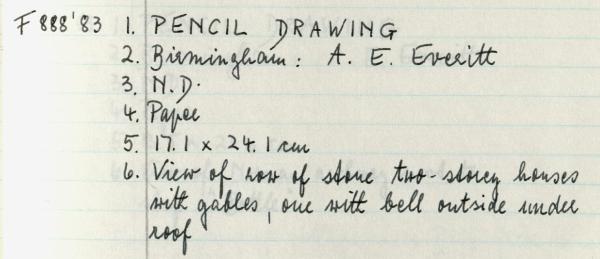 F 888'83 1. PENCIL DRAWING
2. Birmingham: A. E. Everitt
3. N.D.
4. Paper
5. 17.1 x 24.1 cm
6. View of row of stone two-storey houses
with gables, one with bell outside under
roof